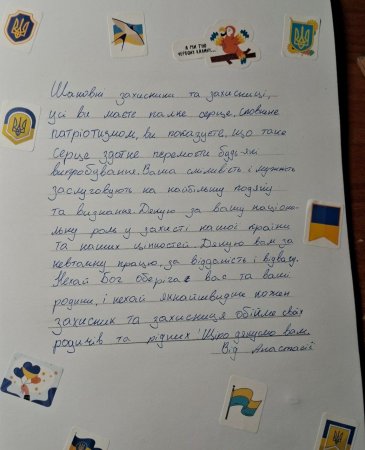 А МИ ТУЮ
ЧЕРВОНУ КАЛИНУ...
Шановні захисники та захисниці,
усі ви маєте палке серце, сповнене
патріотизмом, ви показуєте, що таке
серце здатне перемогти будь-які
випробування. Ваша сміливість і мужність
заслуговують на найбільшу подяку
та визнання. Дякую за вашу націона-
льну роль у захисті нашої країни
та наших цінностей. Дякую вам за
невтомну працю, за відданість і відвагу.
Нехай Бог оберігає вас та ваші
родини, і нехай якнайшвидше кожен
захисник та захисниця обійме своїх
родичів та рідних! Щиро дякуємо вам.
Від Анастасії